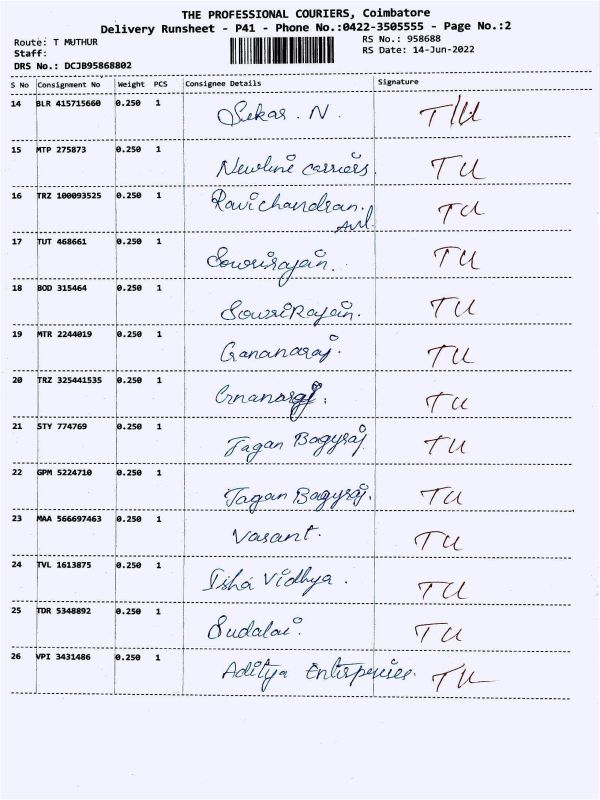 THE PROFESSIONAL COURIERS, Coimbatore
Delivery Runsheet - P41 - Phone No.:0422-3505555 - Page No.:2
Route: T MUTHUR RS No.: 958688
Staff: RS Date: 14-Jun-2022
DRS No.: DCJB95868802
S No Consignment No Weight PCS Consignee Details Signature
14 BLR 415715660 0.250 1 Sekar. N. TU
15 MTP 275873 0.250 1 Newline carriers. TU
16 TRZ 100093525 0.250 1 Ravichandran. TU
17 TUT 468661 0.250 1 Sowrirajan. TU
18 BOD 315464 0.250 1 SowriRajan. TU
19 MTR 2244019 0.250 1 Gnanaraj. TU
20 TRZ 325441535 0.250 1 Gnanaraj. TU
21 STY 774769 0.250 1 Jagan Bagyraj TU
22 GPM 5224710 0.250 1 Jagan Bagyraj. TU
23 MAA 566697463 0.250 1 Vasant. TU
24 TVL 1613875 0.250 1 Isha Vidhya. TU
25 TDR 5348892 0.250 1 Sudalai. TU
26 VPI 3431486 0.250 1 Aditya Enterpenies. TU